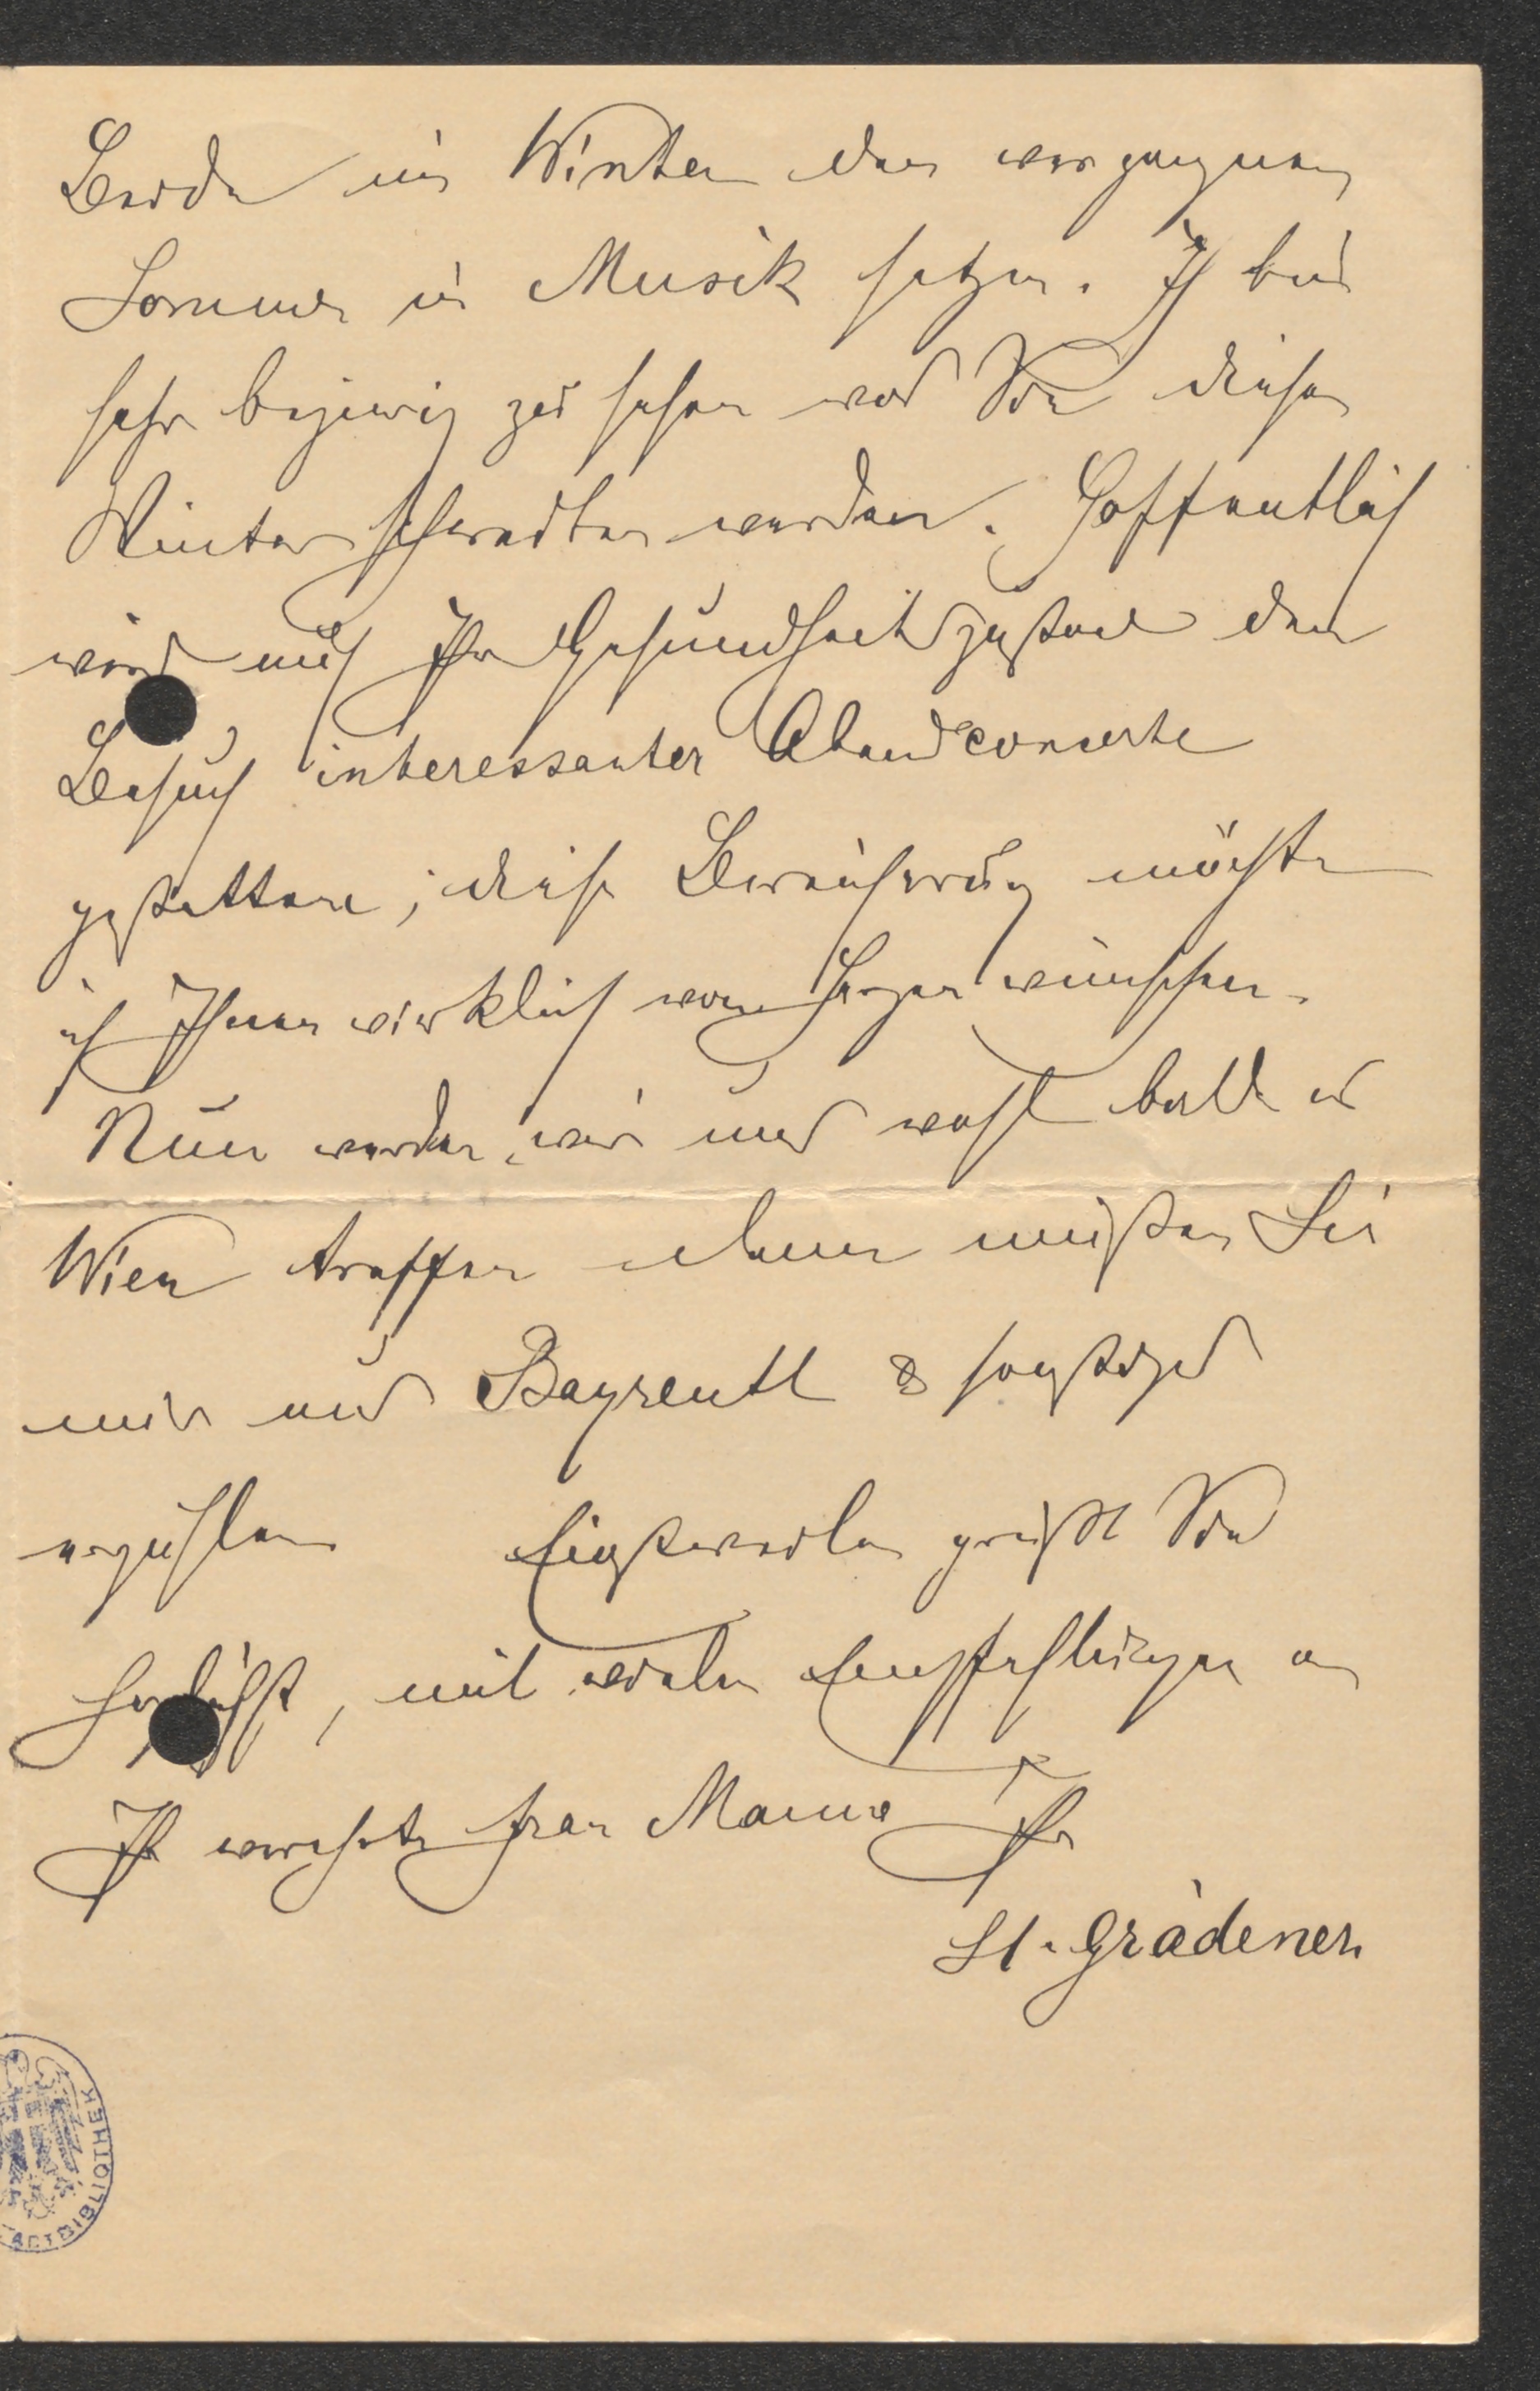 Beide im Winter den vergangenen
Sommer in Musik setzen. Ich bin
sehr begierig zu sehen was Sie diesen
Winter schreiben werden. Hoffentlich
wird auch Ihr Gesundheitszustand den
Besuch interessanter Abendconcerte
gestatten; diese Bereicherung möchte
ich Ihnen wirklich von Herzen wünschen.
Nun werden wir uns wohl bald in
Wien treffen dann müssen Sie
mir von Bayreuth & sonstiges
erzählen Einstweilen grüßt Sie
herzlichst, mit vielen Empfehlungen an
Ihre verehrte Frau Mama Ihr
H. Grädener
BIBLIOTHEK